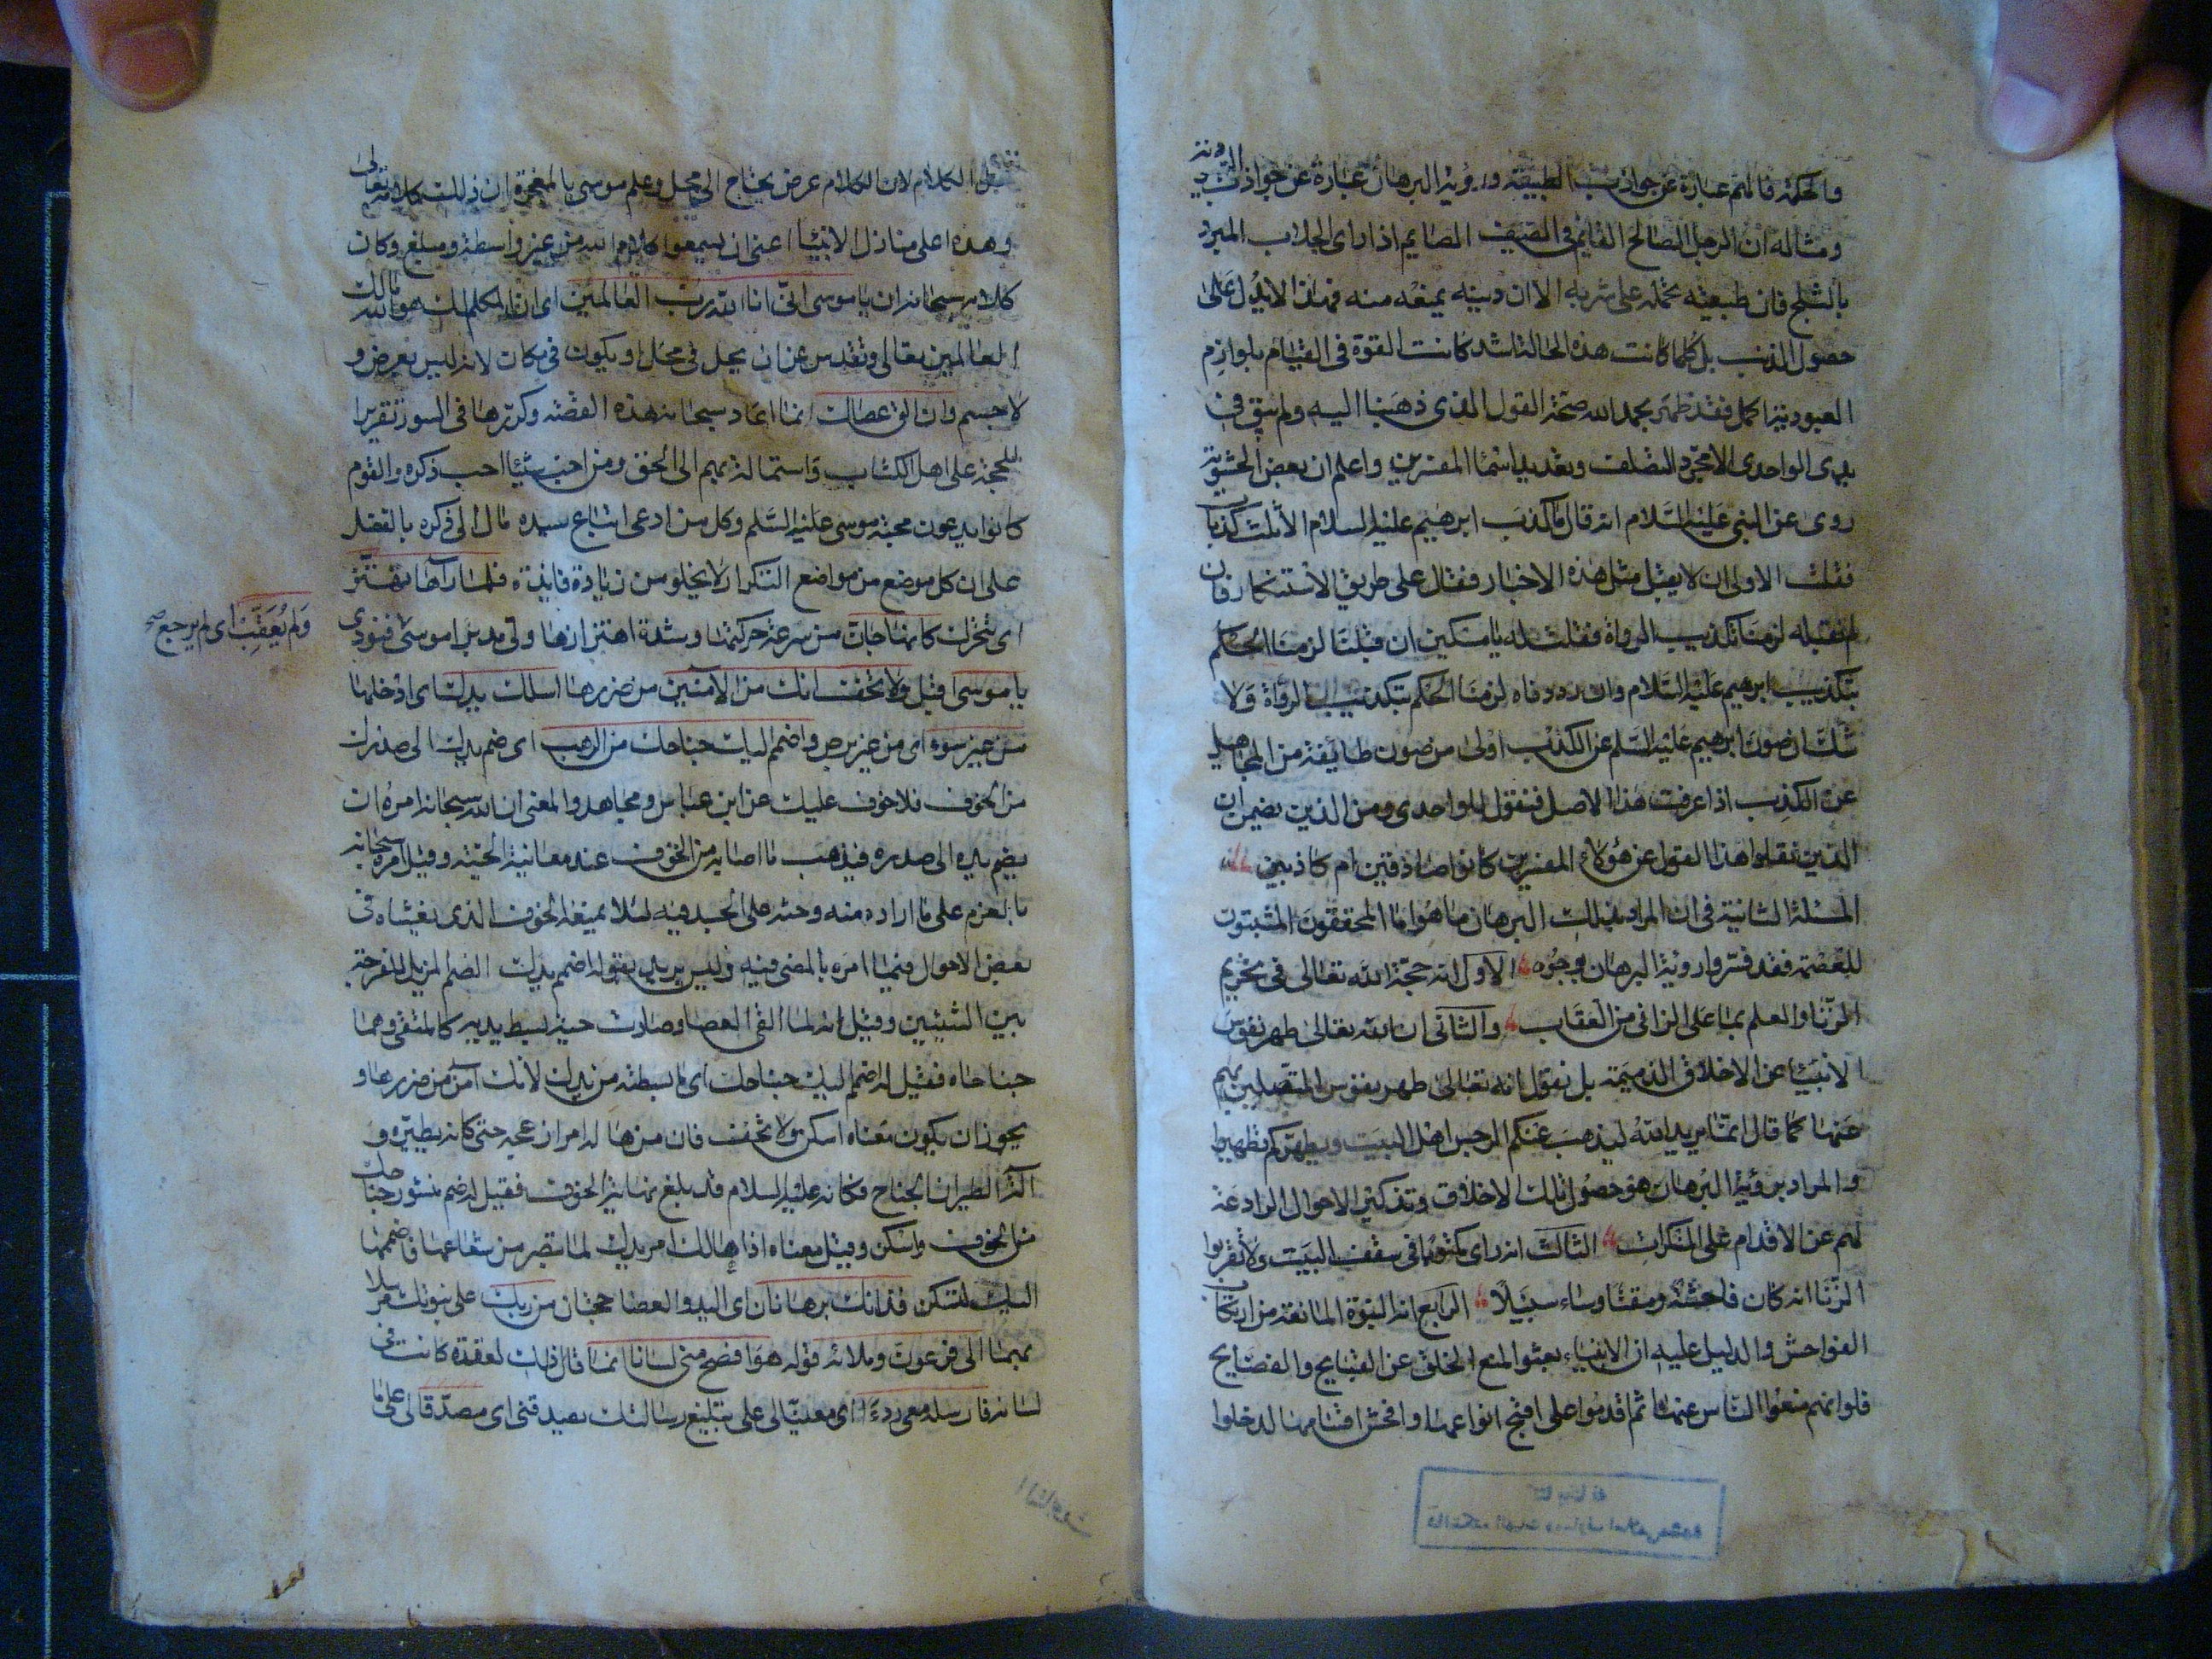 والحكمة فالهم عبارة عن جواذب الطبيعة ورؤية البرهان عبارة عن جواذب العبودية
ومثاله ان الرجل الصالح القائم في الصيف الصايم اذا راى الجلاب المبرد
بالثلج فان طبيعته تحمله على شربه الا ان دينه يمنعه منه فهذا لا يدل على
حصول الذنب بل كلما كانت هذه الحالة اشد كانت القوة في القيام بلوازم
العبودية اكمل فقد ظهر بحمد الله صحة القول الذي ذهبنا اليه ولم يبق في
يدي الواحدي الا مجرد التصلف وتعديد اسما المفسرين واعلم ان بعض الحشوية
روى عن النبي عليه السلام انه قال ما كذب ابرهيم عليه السلام الا ثلث كذبات
فقلت الاولى ان لا يقبل مثل هذه الاخبار فقال على طريق الاستنكار فان
لم نقبله لزمنا تكذيب الرواة فقلت له يا مسكين ان قبلنا لزمنا الحكم
بتكذيب ابرهيم عليه السلام وان رددناه لزمنا الحكم بتكذيب الرواة ولا
شك ان صون ابرهيم عليه السلم عن الكذب اولى من صون طايفة من المجاهيل
عن الكذب اذا عرفت هذا الاصل فنقول للواحدي ومن الذين يضمن ان
الذين نقلوا هذا القول عن هؤلاء المفسرين كانوا صادقين ام كاذبين
المسئلة الثانية في ان المراد بذلك البرهان ما هو اما المحققون المثبتون
للعصمة فقد فسروا رؤية البرهان بوجوه الاول انه حجة الله تعالى في تحريم
الزنا والعلم بما على الزاني من العقاب والثاني ان الله تعالى طهر نفوس
الانبيا عن الاخلاق الذميمة بل نقول انه تعالى طهر نفوس المتصلين بهم
عنها كما قال انما يريد الله ليذهب عنكم الرجس اهل البيت ويطهركم تطهيرا
والمراد برؤية البرهان هو حصول تلك الاخلاق وتذكير الاحوال الرادعة
لهم عن الاقدام على المنكرات الثالث انه راى مكتوبا في سقف البيت ولا تقربوا
الزنا انه كان فاحشة ومقتا وساء سبيلا الرابع انه النبوة المانعة من ارتكاب
الفواحش والدليل عليه ان الانبياء بعثوا لمنع الخلق عن القبايح والفضايح
فلو انهم منعوا الناس عنها ثم اقدموا على اقبح انواعها وافحش اقسامها لدخلوا
الكلام لان الكلام عرض يحتاج الى محل وعلم موسى بالمعجزة ان ذلك كلامه تعالى
وهذه اعلى منازل الانبيا اعنى ان يسمعوا كلام الله من غير واسطة ومبلغ وكان
كلامه سبحانه ان يا موسى اني انا الله رب العالمين اى ان المكلم لك هو الله مالك
العالمين تعالى وتقدس عن ان يحل في محل او يكون في مكان لانه ليس بعرض و
لا جسم وان الق عصاك انما اعاد سبحانه هذه القصة وكررها في السور تقريرا
للحجة على اهل الكتاب واستمالة بهم الى الحق ومن احب شيئا احب ذكره والقوم
كانوا يدعون محبة موسى عليه السلم وكل من ادعى اتباع سيده مال الى ذكره بالفضل
على ان كل موضع من مواضع التكرار لا يخلو من زيادة فايدة فلما رآها تهتز
اى تتحرك كانها جان من سرعة حركتها وشدة اهتزازها ولى مدبرا موسى فنودى
ولم يُعَقِّب اى لم يرجع صح
يا موسى اقبل ولا تخف انك من الآمنين من ضررها اسلك يدك اى ادخلها
من غير سوء اى من غير برص واضمم اليك جناحك من الرهب اى ضم يدك الى صدرك
من الخوف فلا خوف عليك عن ابن عباس ومجاهد والمعنى ان الله سبحانه امره ان
يضم يده الى صدره فيذهب ما اصابه من الخوف عند معاينة الحية وقيل امره سبحانه
بالعزم على ما اراده منه وحثه على الجد فيه لئلا يمنعه الخوف الذى يغشاه فى
بعض الاحوال فيما امره بالمضى فيه وليس يريد بقوله اضمم يدك الضم المزيل للفرجة
بين الشيئين وقيل انه لما القى العصا وصارت حية بسط يديه كالمتقى وهما
جناحاه فقيل له اضمم اليك جناحك اى ما بسطته من يدك لانك آمن من ضررها و
يجوز ان يكون معناه اسكن ولا تخف فان من هاله امر ازعجه حتى كانه يطيره و
آلة الطيران الجناح فكانه عليه السلام قد بلغ نهاية الخوف فقيل له ضم منشور جناحك
من الخوف واسكن وقيل معناه اذا هالك امر يدك لما تبصر من شعاعها فاضممها
اليك لتسكن فذانك برهانان اى اليد والعصا حجتان من ربك على نبوتك مرسلا
بهما الى فرعون وملائه قوله هو افصح منى لسانا انما قال ذلك لعقدة كانت فى
لسانه فارسله معى ردءا اى معينا لى على تبليغ رسالتك يصدقنى اى مصدقا لى على ما